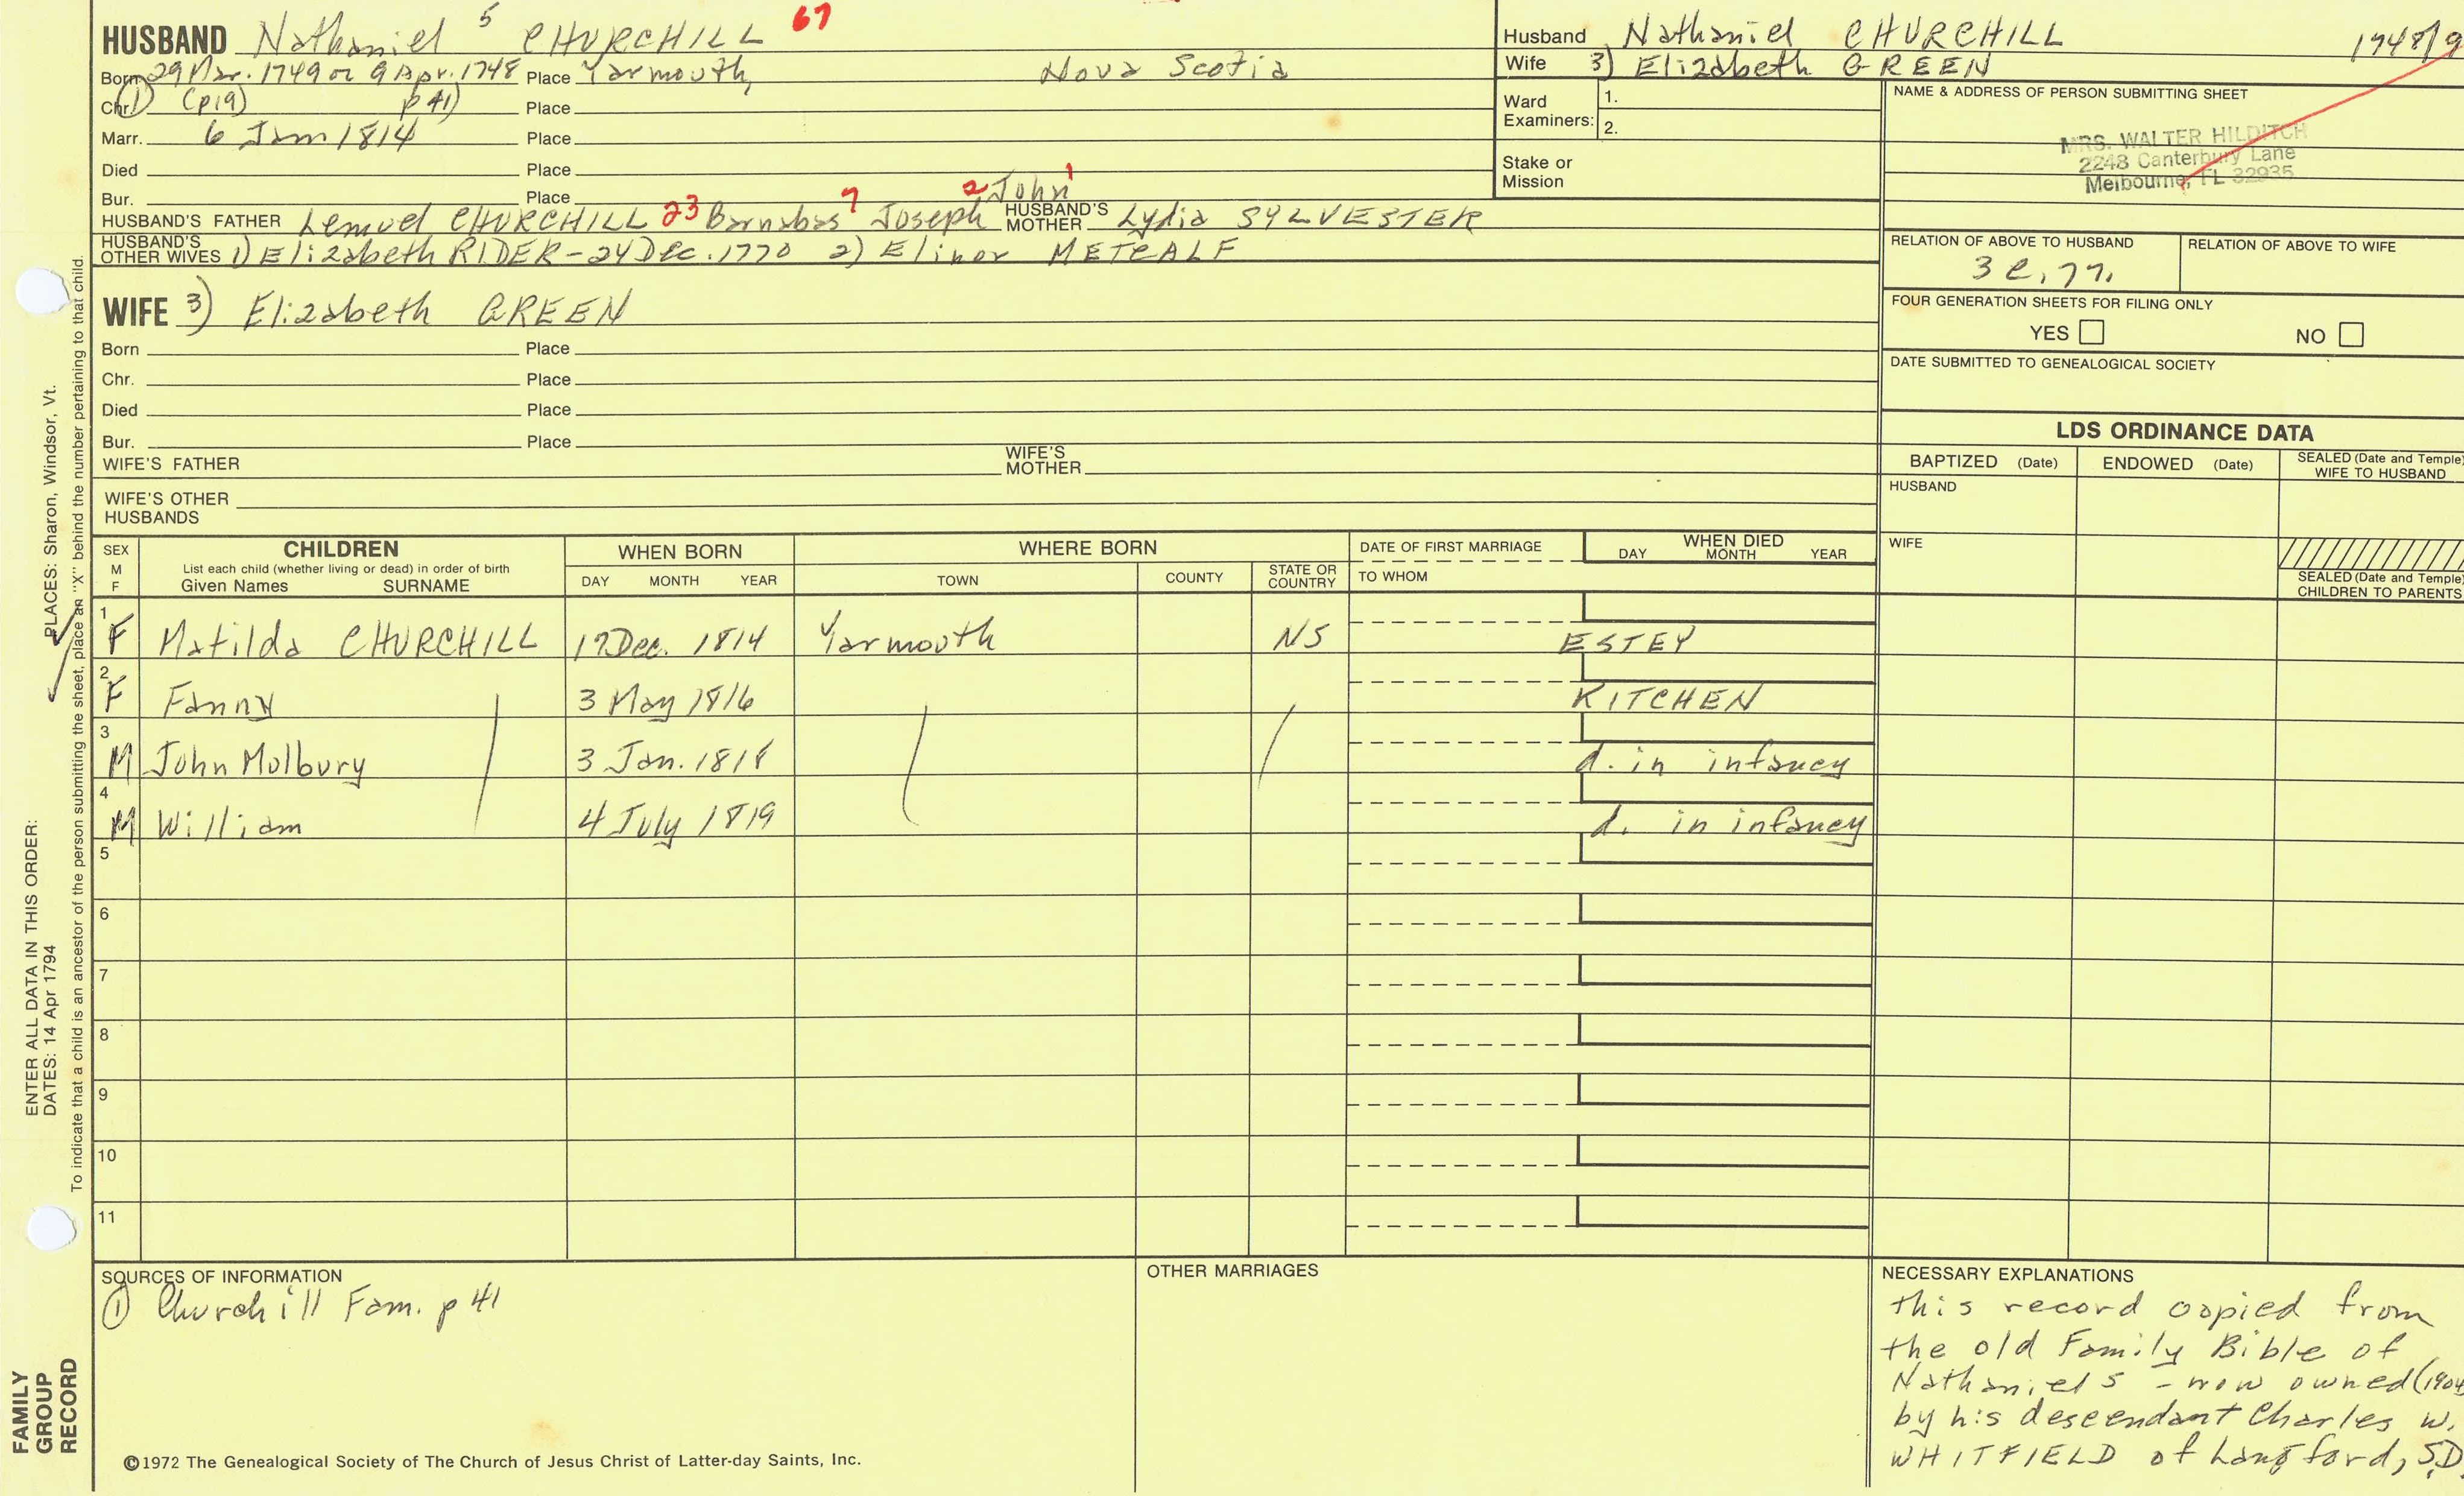 HUSBAND Nathaniel 5 CHURCHILL 67
Born 29 Mar. 1749 or 9 Apr. 1748 Place Yarmouth, Nova Scotia
Chr. ① (p19) p 41) Place
Marr. 6 Jan 1814 Place
Died Place
Bur. Place
2 John 1
HUSBAND'S FATHER Lemuel CHURCHILL 23 Barnabas 7 Joseph HUSBAND'S MOTHER Lydia SYLVESTER
HUSBAND'S OTHER WIVES 1) Elizabeth RIDER - 24 Dec. 1770 2) Elinor METCALF
WIFE 3) Elizabeth GREEN
Born Place
Chr. Place
Died Place
Bur. Place
WIFE'S FATHER WIFE'S MOTHER
WIFE'S OTHER HUSBANDS
Husband Nathaniel CHURCHILL 1748/9
Wife 3) Elizabeth GREEN
Ward Examiners: 1.
2.
Stake or Mission
NAME & ADDRESS OF PERSON SUBMITTING SHEET
MRS. WALTER HILDITCH
2248 Canterbury Lane
Melbourne, FL 32935
RELATION OF ABOVE TO HUSBAND RELATION OF ABOVE TO WIFE
FOUR GENERATION SHEETS FOR FILING ONLY
YES NO
DATE SUBMITTED TO GENEALOGICAL SOCIETY
LDS ORDINANCE DATA
BAPTIZED (Date) ENDOWED (Date) SEALED (Date and Temple) WIFE TO HUSBAND
HUSBAND
WIFE
SEALED (Date and Temple) CHILDREN TO PARENTS
SEX M F CHILDREN WHEN BORN WHERE BORN DATE OF FIRST MARRIAGE WHEN DIED
List each child (whether living or dead) in order of birth
Given Names SURNAME DAY MONTH YEAR TOWN COUNTY STATE OR COUNTRY TO WHOM DAY MONTH YEAR
1 F Matilda CHURCHILL 17 Dec. 1814 Yarmouth NS ESTEY
2 F Fanny 3 May 1816 KITCHEN
3 M John Molbury 3 Jan. 1818 d. in infancy
4 M William 4 July 1819 d. in infancy
5
6
7
8
9
10
11
SOURCES OF INFORMATION
① Churchill Fam. p 41
OTHER MARRIAGES
NECESSARY EXPLANATIONS
this record copied from
the old Family Bible of
Nathaniel 5 - now owned (1904
by his descendant Charles W.
WHITFIELD of Langford, S.D.
©1972 The Genealogical Society of The Church of Jesus Christ of Latter-day Saints, Inc.
ENTER ALL DATA IN THIS ORDER:
DATES: 14 Apr 1794 PLACES: Sharon, Windsor, Vt.
To indicate that a child is an ancestor of the person submitting the sheet, place an "X" behind the number pertaining to that child.
FAMILY
GROUP
RECORD